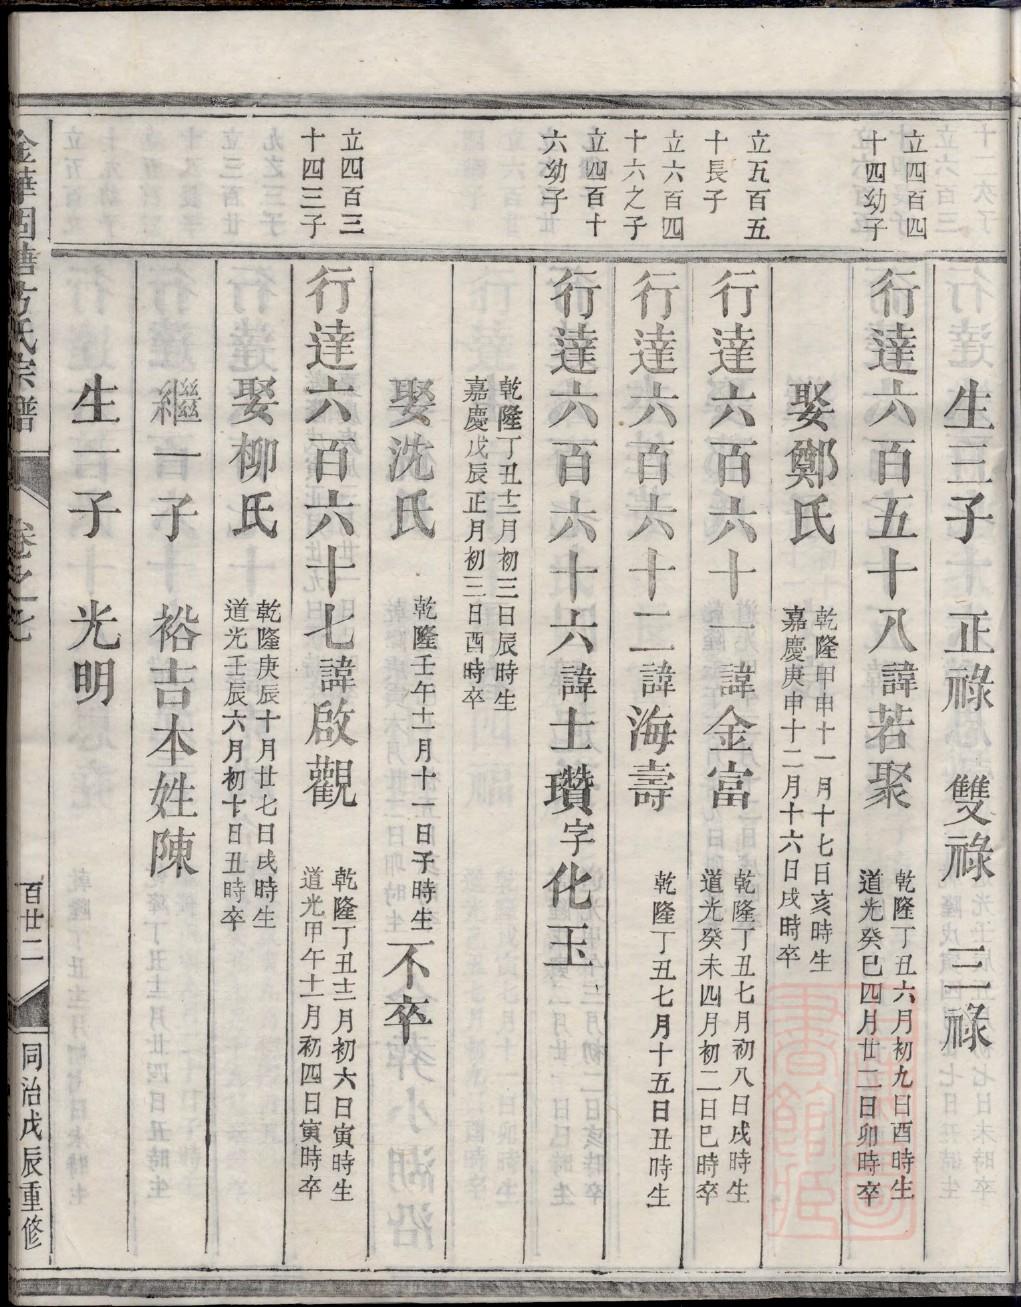 生三子 正祿 雙祿 三祿
立四百四
十四幼子
行達六百五十八諱若聚
乾隆丁丑六月初九日酉時生
道光癸巳四月廿二日卯時卒
娶鄭氏
乾隆甲申十一月十七日亥時生
嘉慶庚申十二月十六日戌時卒
立五百五
十長子
行達六百六十一諱金富
乾隆丁丑七月初八日戌時生
道光癸未四月初二日巳時卒
立六百四
十六之子
行達六百六十二諱海壽
乾隆丁丑七月十五日丑時生
立四百十
六幼子
行達六百六十六諱士瓚字化玉
乾隆丁丑十二月初三日辰時生
嘉慶戊辰正月初三日酉時卒
娶洗氏
乾隆壬午十一月十一日子時生
不卒
立四百三
十四三子
行達六百六十七諱啟觀
乾隆丁丑十二月初六日寅時生
道光甲午十一月初四日寅時卒
娶柳氏
乾隆庚辰十月廿七日戌時生
道光壬辰六月初十日丑時卒
繼一子 裕吉本姓陳
生一子 光明
金華國塘方氏宗譜 卷之七 百廿二 同治戊辰重修